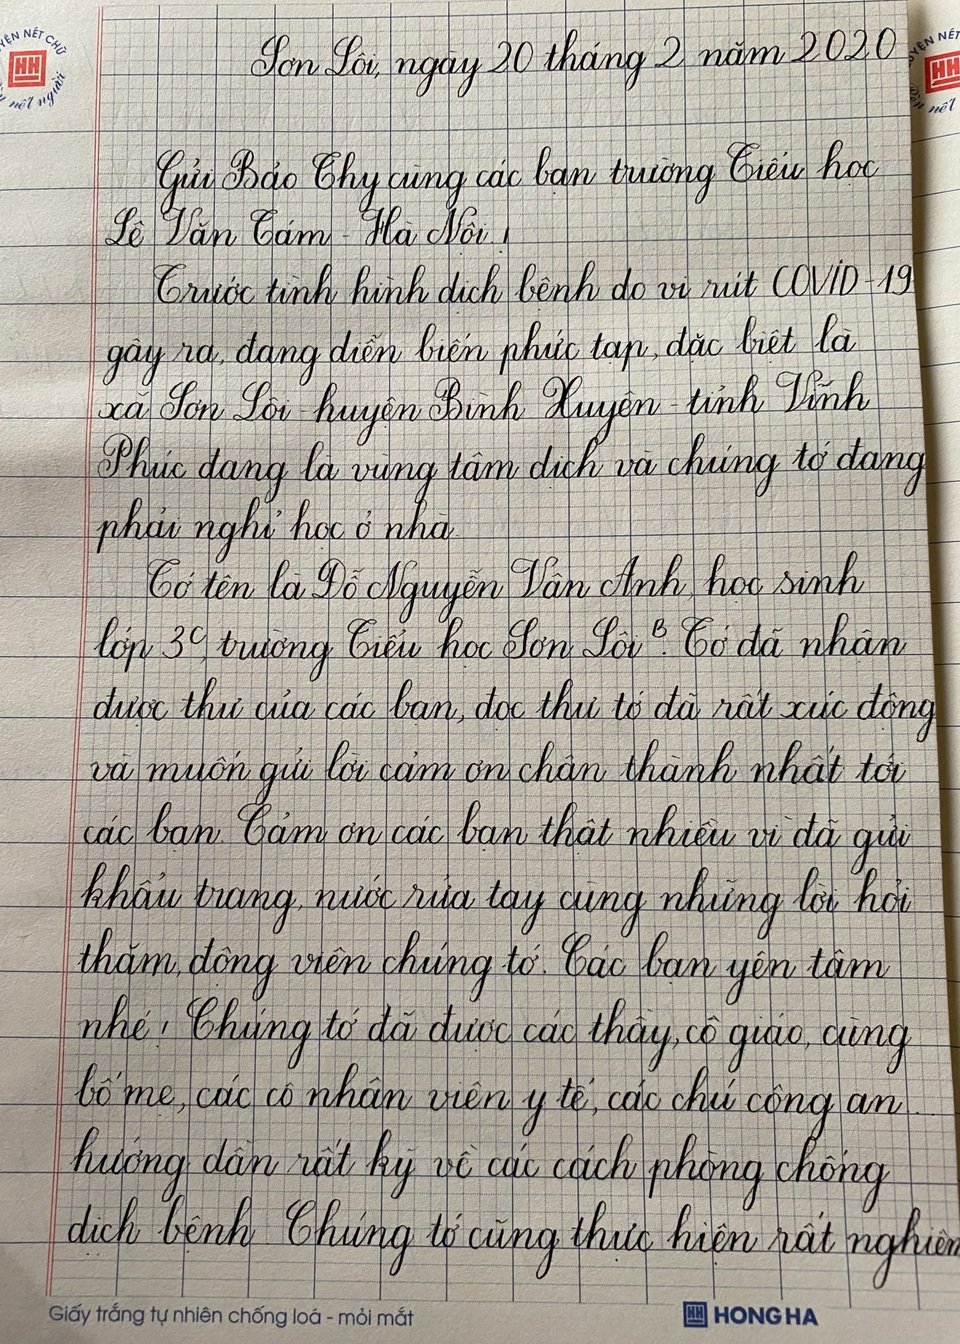 Sơn Lôi, ngày 20 tháng 2 năm 2020
Gửi Bảo Thy cùng các bạn trường Tiểu học
Lê Văn Tám - Hà Nội!
Trước tình hình dịch bệnh do vi rút COVID-19
gây ra, đang diễn biến phức tạp, đặc biệt là
xã Sơn Lôi - huyện Bình Xuyên - tỉnh Vĩnh
Phúc đang là vùng tâm dịch và chúng tớ đang
phải nghỉ học ở nhà.
Tớ tên là Đỗ Nguyễn Vân Anh, học sinh
lớp 3C, trường Tiểu học Sơn Lôi B. Tớ đã nhận
được thư của các bạn, đọc thư tớ đã rất xúc động
và muốn gửi lời cảm ơn chân thành nhất tới
các bạn. Cảm ơn các bạn thật nhiều vì đã gửi
khẩu trang, nước rửa tay cùng những lời hỏi
thăm, động viên chúng tớ. Các bạn yên tâm
nhé! Chúng tớ đã được các thầy, cô giáo, cùng
bố mẹ, các cô nhân viên y tế, các chú công an
hướng dẫn rất kỹ về các cách phòng chống
dịch bệnh. Chúng tớ cũng thực hiện rất nghiêm
Giấy trắng tự nhiên chống loá - mỏi mắt
HH HONG HA